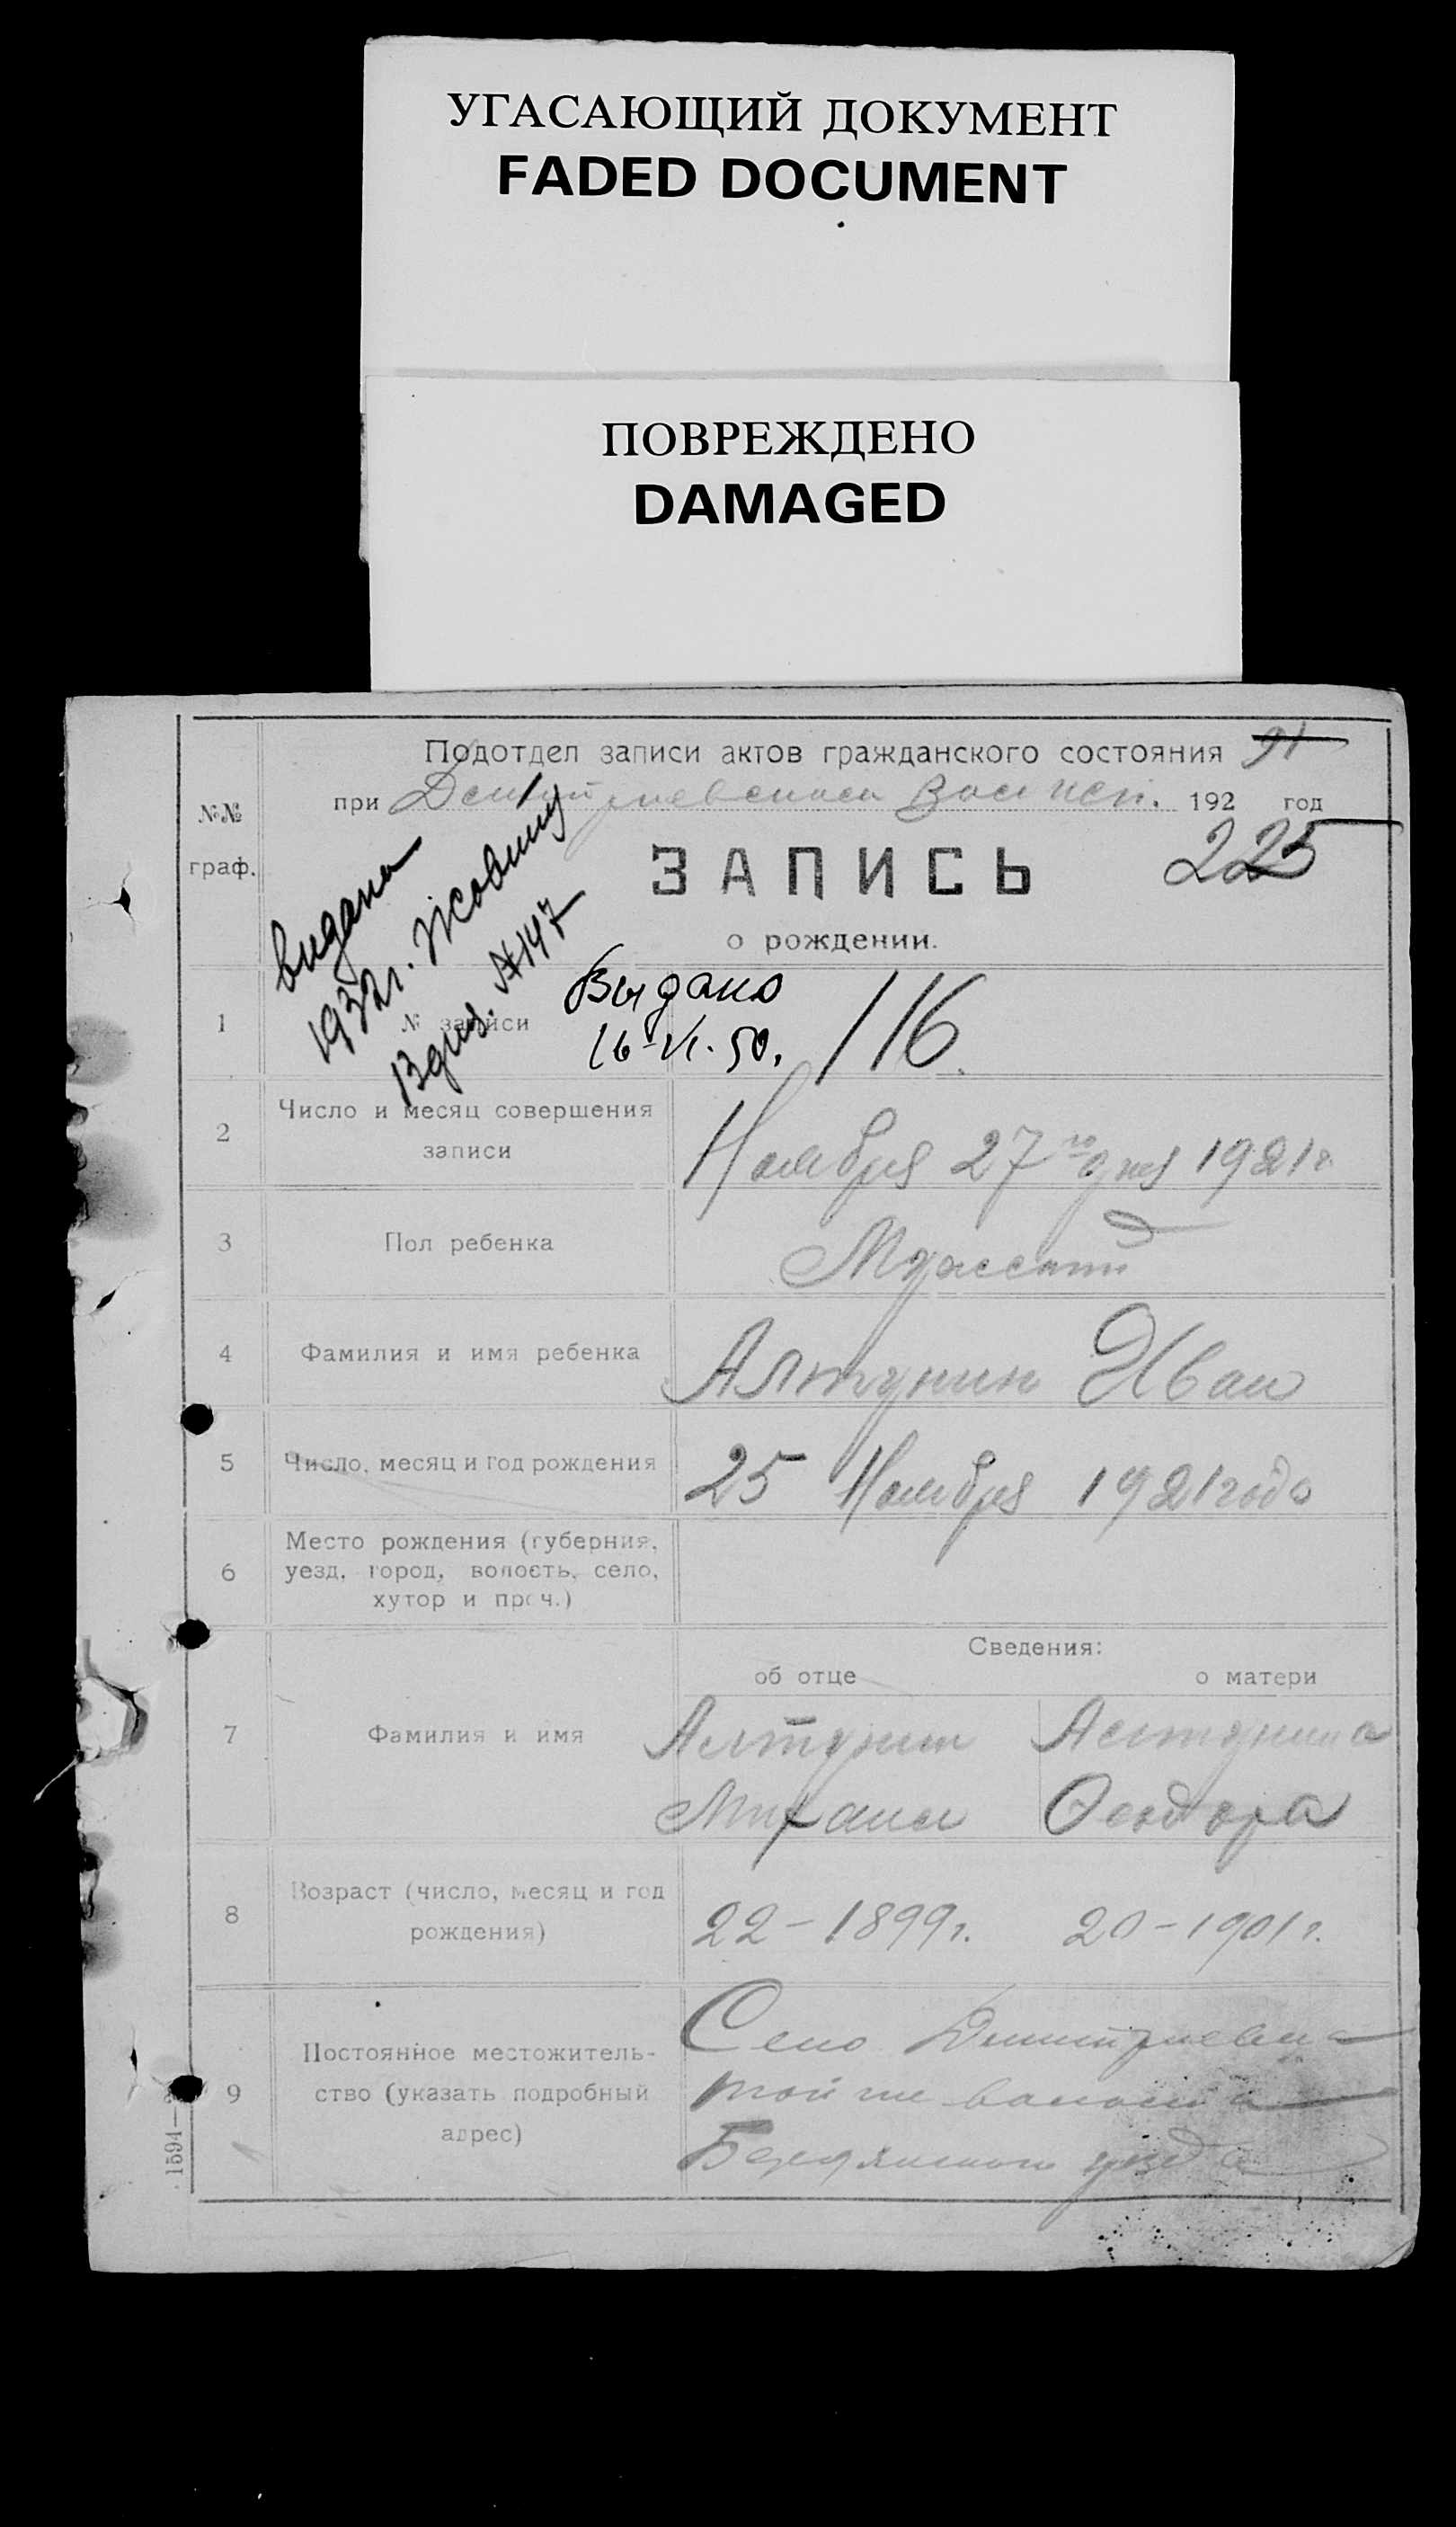 УГАСАЮЩИЙ ДОКУМЕНТ
FADED DOCUMENT
ПОВРЕЖДЕНО
DAMAGED
Подотдел записи актов гражданского состояния 91
при Волисп. 192 год
№№
граф.
225
ЗАПИСЬ
о рождении.
видана
1932г. Жовтну
13 дня. №147
1
№ записи
Выдано
16-VI-50.
116.
2
Число и месяц совершения
записи
Ноября 27го дня 1921г.
3
Пол ребенка
4
Фамилия и имя ребенка
Алтунин Иван
5
Число, месяц и год рождения
25 Ноября 1921 года
6
Место рождения (губерния,
уезд, город, волость, село,
хутор и проч.)
Сведения:
об отце
о матери
7
Фамилия и имя
Алтунин Алтунина
Михаил Феодора
8
Возраст (число, месяц и год
рождения)
22-1899г. 20-1901г.
9
Постоянное местожитель-
ство (указать подробный
адрес)
Село Дмитриевка
той же волости
Бердянского уезда
1594—